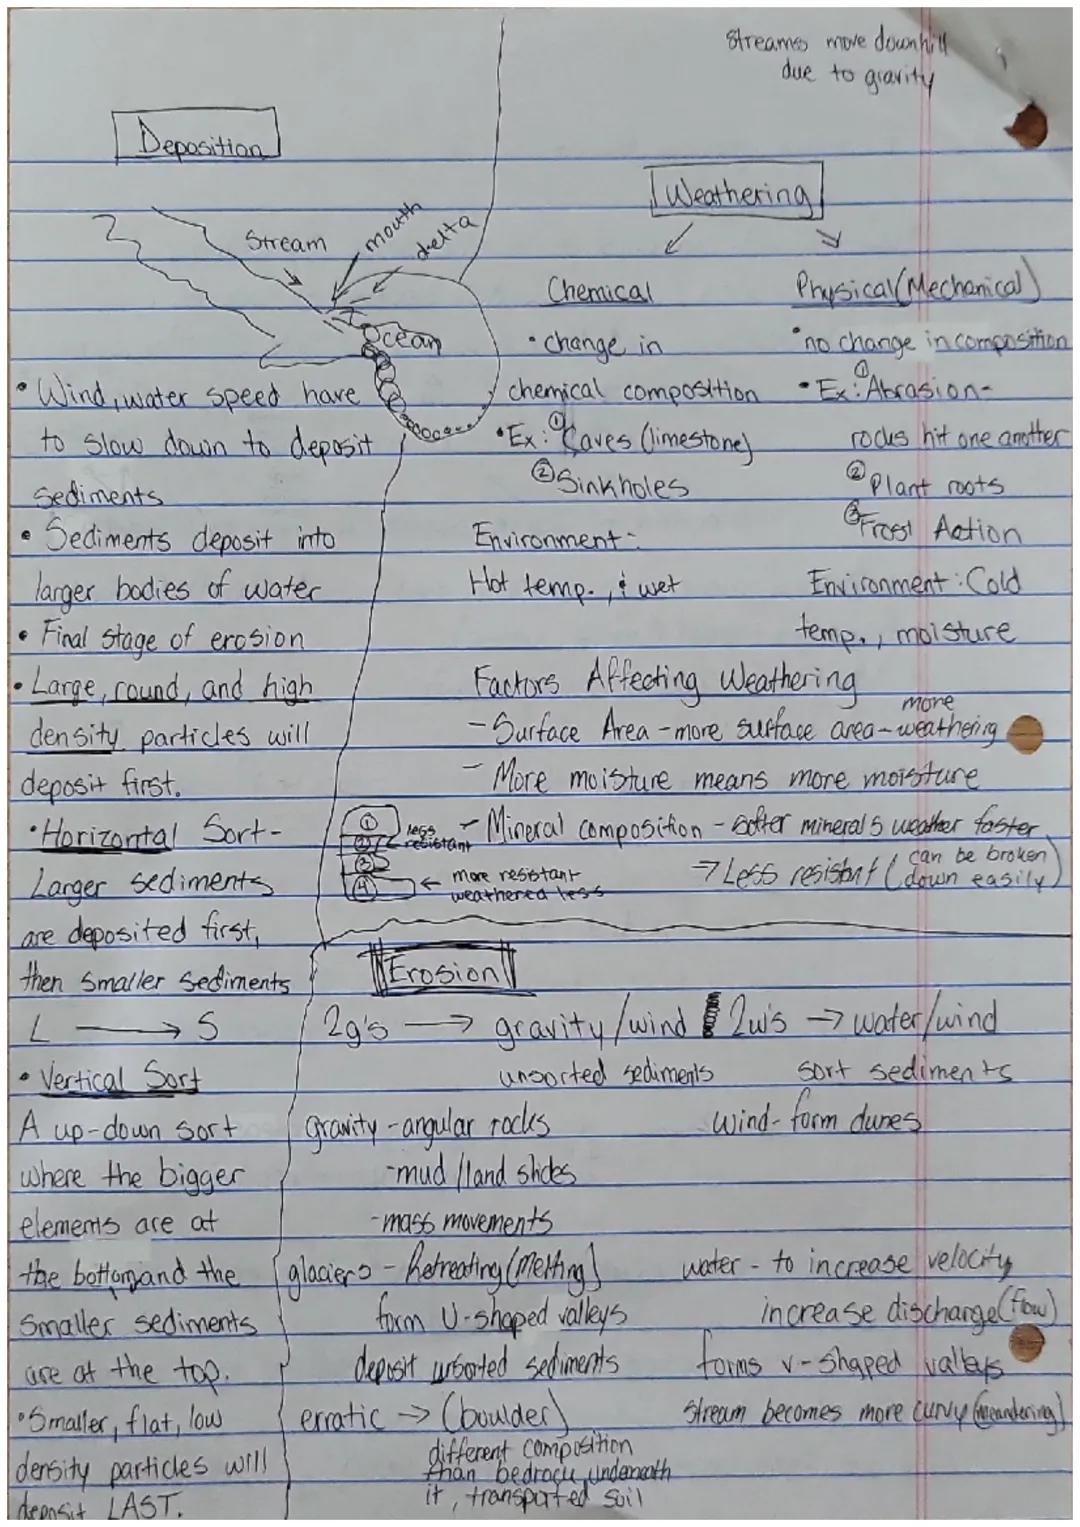 Streams move downhill
due to gravity
Deposition
Stream
mouth
delta
Ocean
• Wind, water speed have
to slow down to deposit
sediments
• Sediments deposit into
larger bodies of water
• Final stage of erosion
• Large, round, and high
density particles will
deposit first.
• Horizontal Sort-
Larger sediments
are deposited first,
then smaller sediments
L → S
• Vertical Sort
A up-down sort
where the bigger
elements are at
the bottom and the
smaller sediments
are at the top.
• Smaller, flat, low
density particles will
deposit LAST.
Weathering
Chemical
• change in
chemical composition
• Ex: ① Caves (limestone)
② Sinkholes
Environment:
Hot temp., & wet
Physical (Mechanical)
• no change in composition
• Ex: ① Abrasion-
rocks hit one another
② Plant roots
③ Frost Action
Environment: Cold
temp., moisture
Factors Affecting Weathering
- Surface Area - more surface area - more weathering
- More moisture means more moisture
- Mineral composition - softer minerals weather faster
→ Less resistant (can be broken down easily)
① ② ③ ④
less resistant
← more resistant
weathered less
Erosion
2g's → gravity/wind
unsorted sediments
gravity - angular rocks
- mud/land slides
- mass movements
glaciers - Retreating (Melting)
form U-shaped valleys
deposit unsorted sediments
erratic → (boulder)
different composition
than bedrock underneath
it, transported soil
2w's → water/wind
sort sediments
wind - form dunes
water - to increase velocity
increase discharge (flow)
forms v-shaped valleys
stream becomes more curvy (meandering)